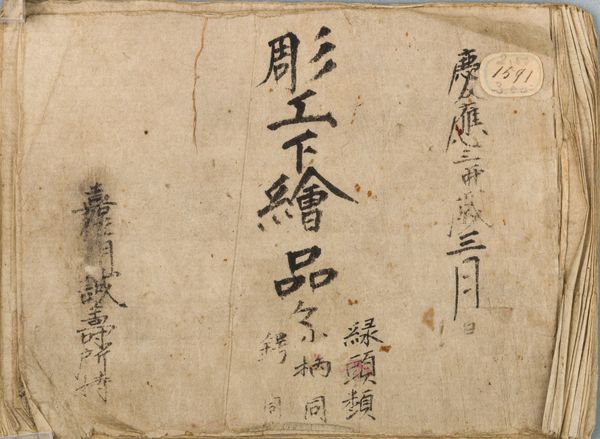 慶應三卯歳三月日
1591
彫工下繪品々
縁頭類
柄同
鍔同
嘉 月誠壽所持